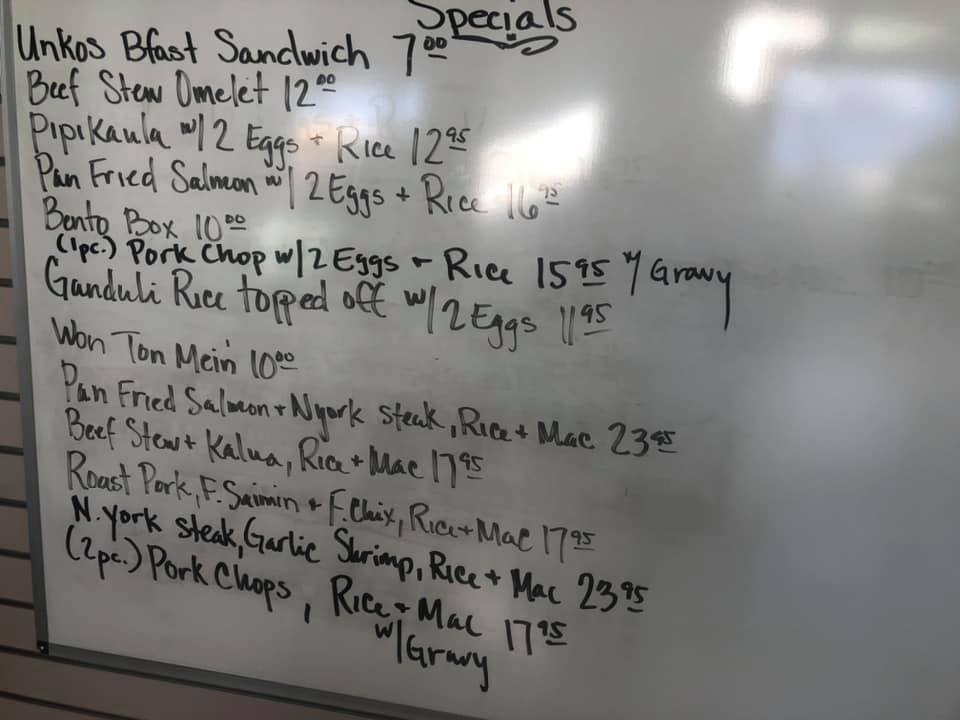 Specials
Unkos Bfast Sandwich 7.00
Beef Stew Omelet 12.00
Pipikaula w/2 Eggs + Rice 12.95
Pan Fried Salmon w/2 Eggs + Rice 16.95
Bento Box 10.00
(1pc.) Pork Chop w/2 Eggs + Rice 15.95 w/ Gravy
Ganduli Rice topped off w/2 Eggs 11.95
Won Ton Mein 10.00
Pan Fried Salmon + Nyork Steak, Rice + Mac 23.95
Beef Stew + Kalua, Rice + Mac 17.95
Roast Pork, F. Saimin + F. Chix, Rice + Mac 17.95
N. york Steak, Garlic Shrimp, Rice + Mac 23.95
(2pc.) Pork Chops, Rice + Mac 17.95
w/Gravy